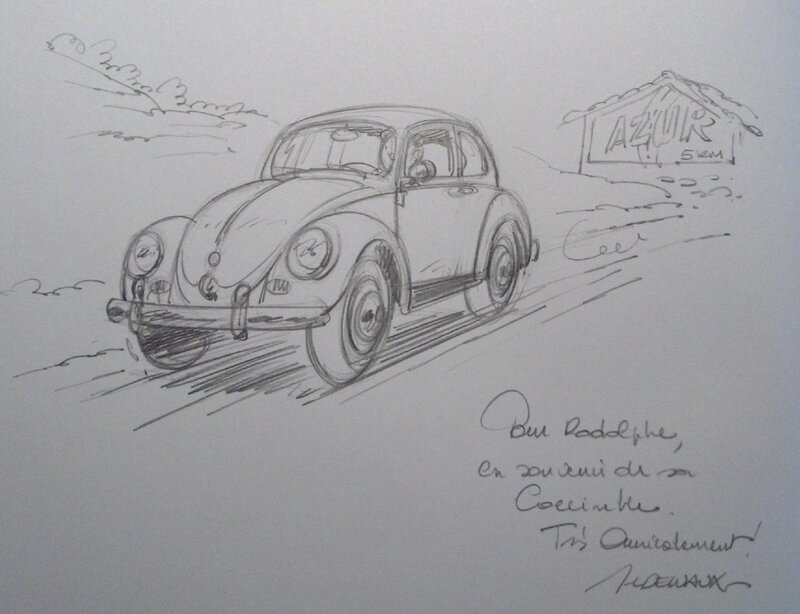 AZUR
5 KM
Pour Rodolphe,
en souvenir de sa
Coccinelle.
Très Amicalement!